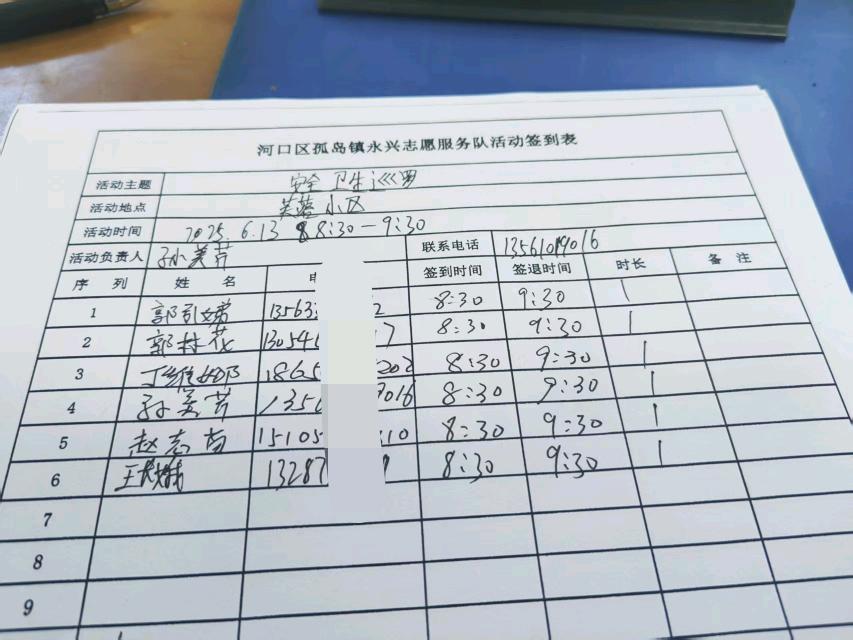 河口区孤岛镇永兴志愿服务队活动签到表
活动主题 安全卫生巡罗
活动地点 芙蓉小区
活动时间 2025.6.13 8:30-9:30
活动负责人 孙美芳 联系电话 13561019016
序列 姓名 签到时间 签退时间 时长 备注
1 郭引娣 13563 2 8:30 9:30 1
2 郭林花 130541 17 8:30 9:30 1
3 1865 202 8:30 9:30 1
4 孙美芳 1356 9016 8:30 9:30 1
5 赵志苗 15105 110 8:30 9:30 1
6 13287 8:30 9:30 1
7
8
9